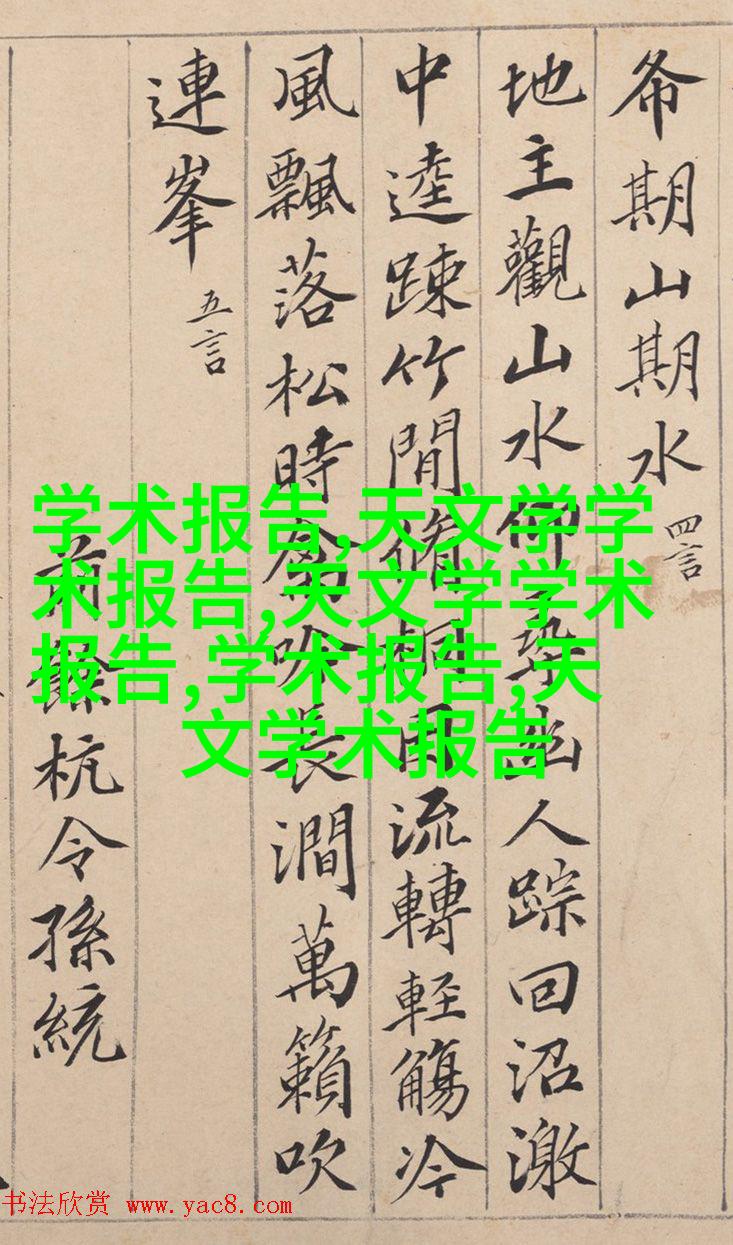 希期山期水 四言
地主觀山水仰尋幽人踪回沼激
中逵踈竹間脩桐因流轉輕觴冷
風飄落松時禽吟長澗萬籟吹
連峯 五言
前餘杭令孫統
学术报告,天文学学
术报告,天文学学术
报告,学术报告,天
文学术报告
书法欣赏 www.yac8.com